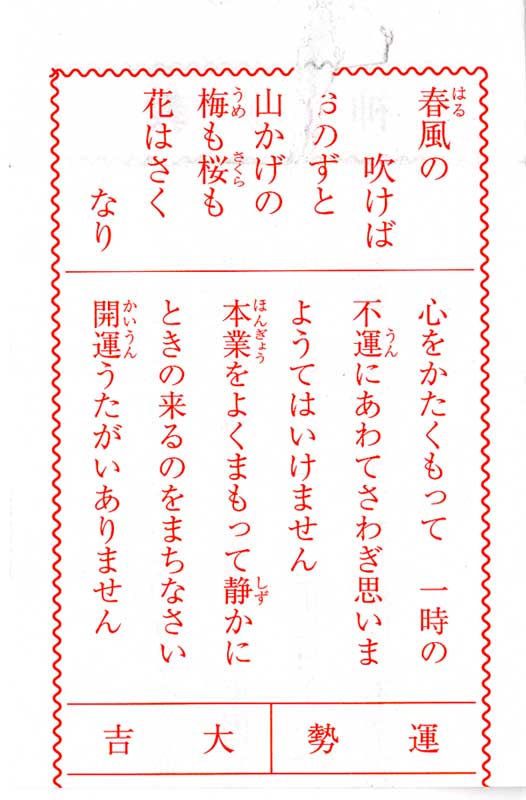 春風の
吹けば
おのずと
山かげの
梅も桜も
花はさく
なり
心をかたくもって 一時の
不運にあわてさわぎ思いま
ようてはいけません
本業をよくまもって静かに
ときの来るのをまちなさい
開運うたがいありません
運勢
大吉